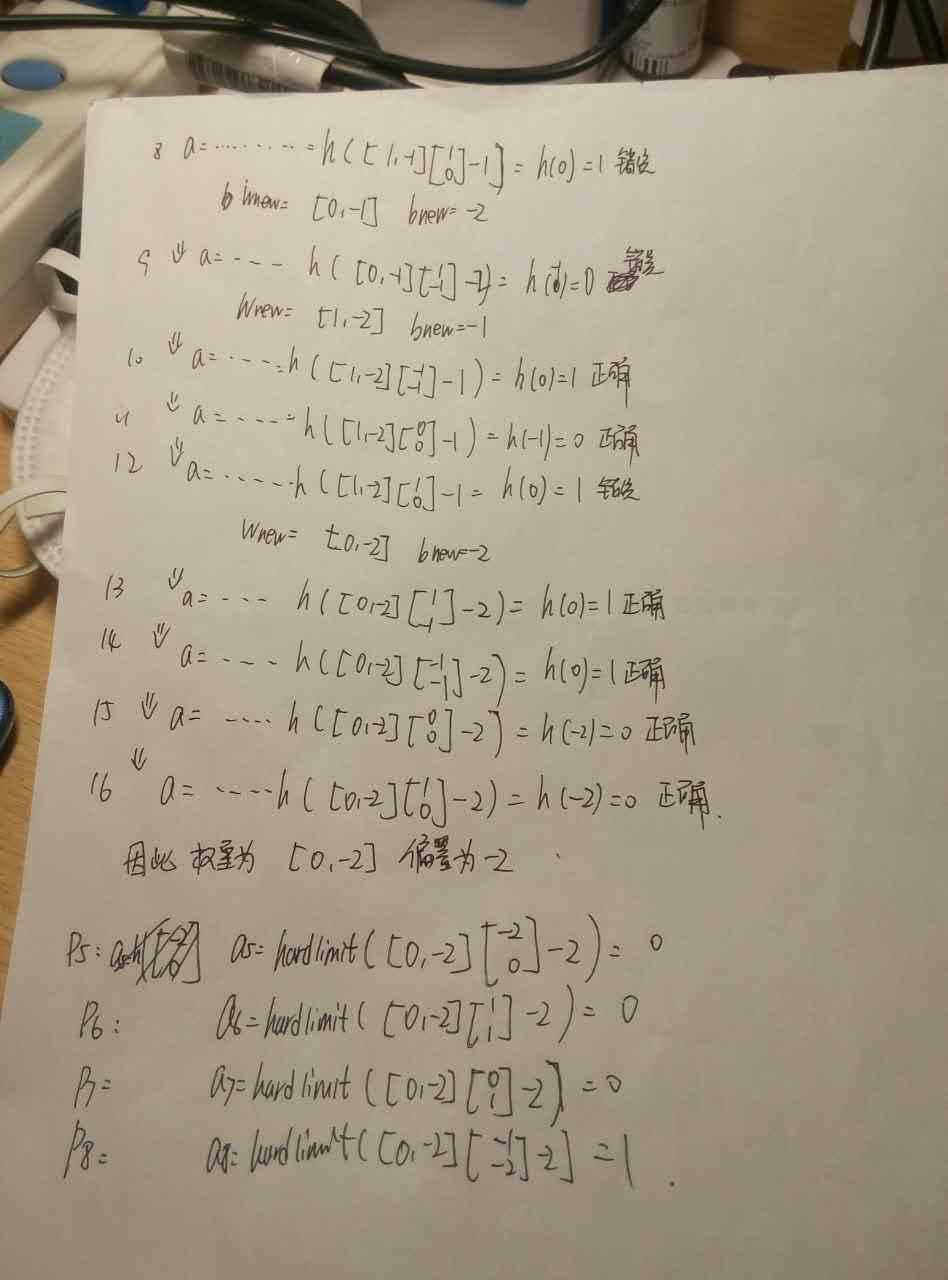 8 a=········=h([1,-1][1 0]-1]=h(0)=1 错误
wnew= [0,-1] bnew=-2
9 ⇓ a=---- h([0,-1][1 -1]-2)= h(-1)=0 错误
Wnew= [1,-2] bnew=-1
10 ⇓ a=····h([1,-2][-1 -1]-1)=h(0)=1 正确
⇓ a=----=h([1,-2][0 0]-1)=h(-1)=0 正确
12 ⇓ a=·····h([1,-2][1 0]-1= h(0)=1 错误
Wnew= [0,-2] bnew=-2
13 ⇓ a=--- h([0,-2][1 -1]-2)= h(0)=1 正确
14 ⇓ a=---- h([0,-2][-1 -1]-2)= h(0)=1 正确
15 ⇓ a= ---- h([0,-2][0 0]-2)= h(-2)=0 正确
16 ⇓ a= ----h([0,-2][1 0]-2)= h(-2)=0 正确.
因此 权重为 [0,-2] 偏置为-2
P5: a5=hardlimit([0,-2][-2 0]-2)= 0
P6: a6=hardlimit([0,-2][1 1]-2)= 0
P7= a7=hardlimit([0,-2][0 1]-2)=0
P8= a8=hardlimit([0,-2][-1 -2]-2]=1.